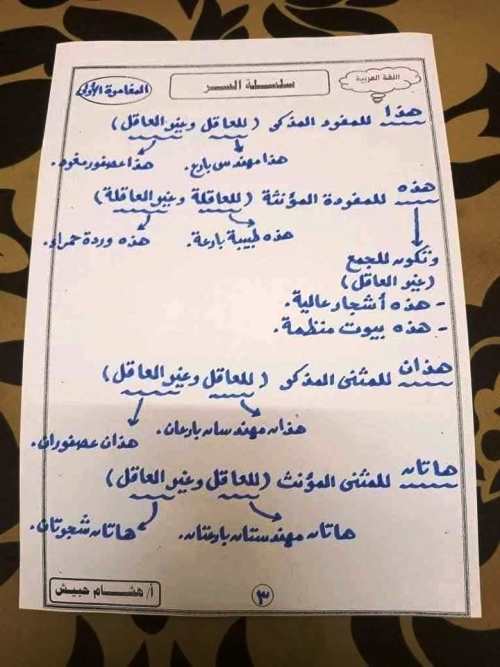 اللغة العربية
سلسلة السر
المغامرة الأولى
هذا للمفرد المذكر (للعاقل وغير العاقل)
هذا مهندس بارع. هذا عصفور مغرد.
هذه للمفردة المؤنثة (للعاقلة وغير العاقلة)
هذه طبيبة بارعة. هذه وردة حمراء.
وتكون للجمع
(غير العاقل)
- هذه أشجار عالية.
- هذه بيوت منظمة.
هذان للمثنى المذكر (للعاقل وغير العاقل)
هذان مهندسان بارعان. هذان عصفوران.
هاتان للمثنى المؤنث (للعاقل وغير العاقل)
هاتان مهندستان بارعتان. هاتان شجرتان.
٣
أ/ هشام حبيش